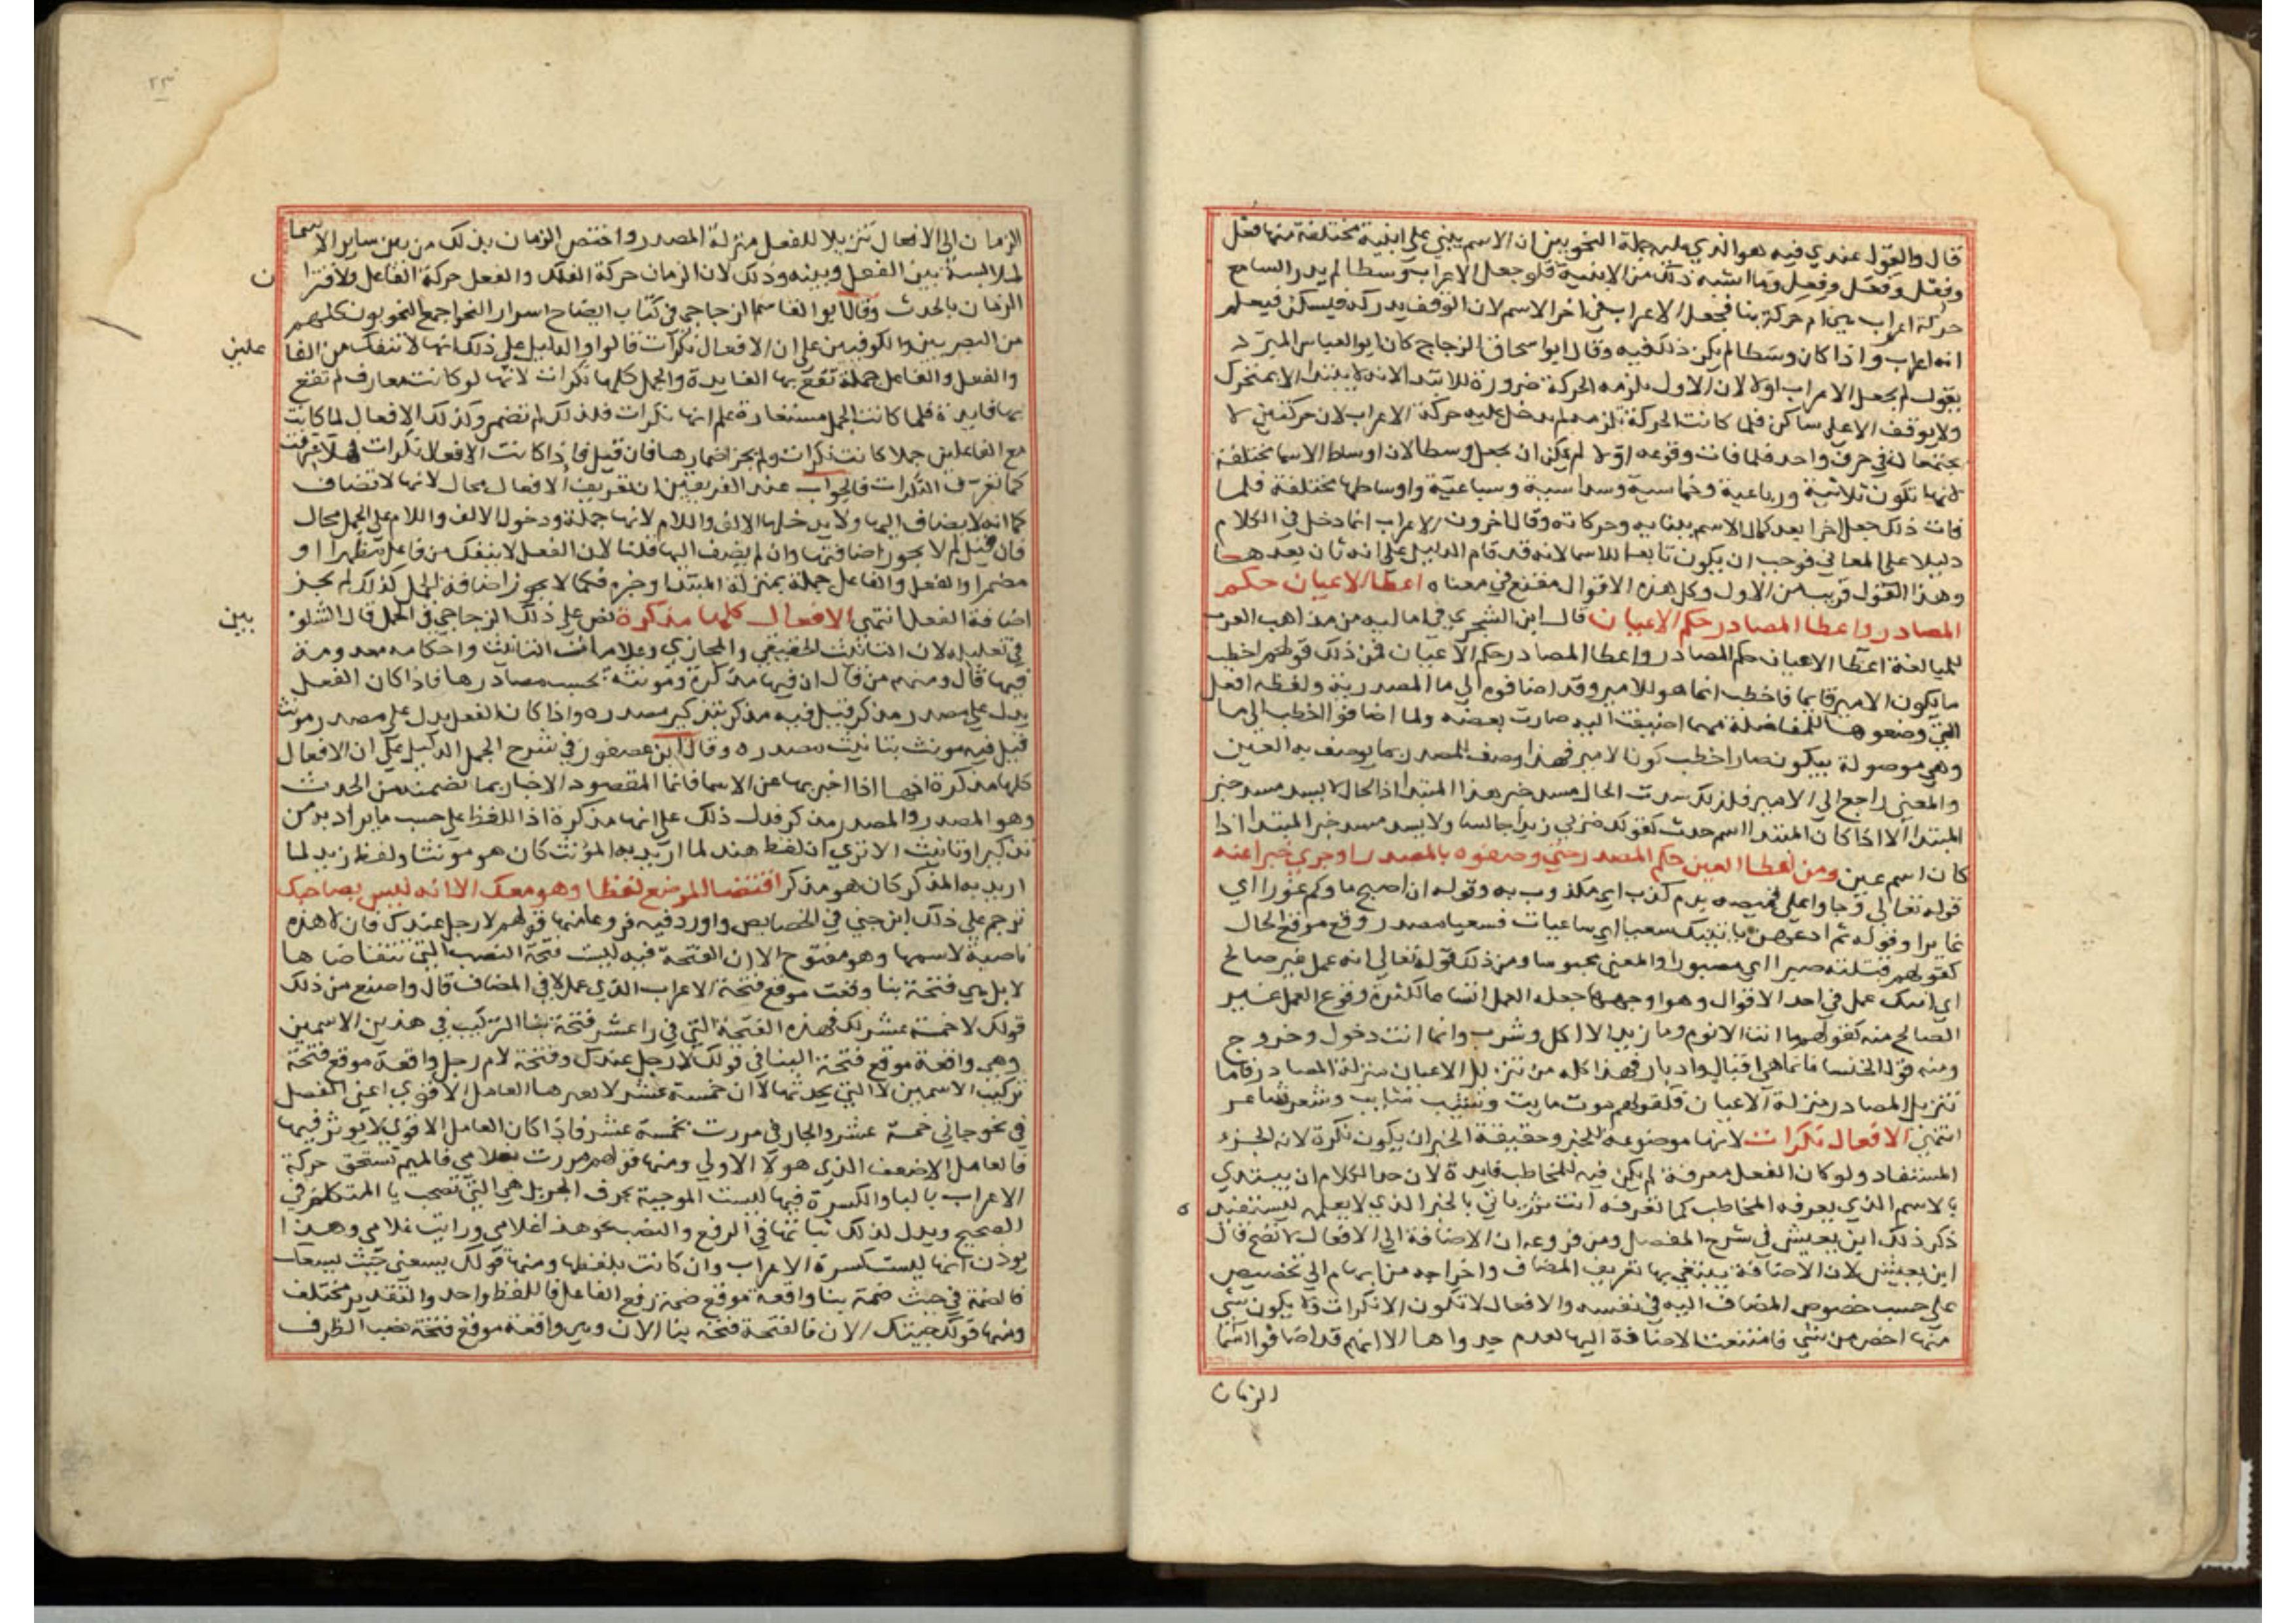 قال والقول عندي فيه هو الذي عليه جملة النحويين ان الاسم يبني على ابنية مختلفة منها فعل
وفعل وفعل وفعل وما اشبه ذلك من الابنية فلو جعل الاعراب وسطا لم يدر السامع
حركة اعراب هي ام حركة بنا فجعل الاعراب في اخر الاسم لان الوقف يدركه فيسكن فيعلم
انه اعراب واذا كان وسطا لم يكن ذلك فيه وقال ابو اسحاق الزجاج كان ابو العباس المبرد
يقول لم يجعل الاعراب اولا لان الاول يلزمه الحركة ضرورة للابتدا لانه لا يبتدا الا بمتحرك
ولا يوقف الا على ساكن فلما كانت الحركة تلزمه لم يدخل عليه حركة الاعراب لان حركتين لا
يجتمعان في حرف واحد فلما فات وقوعه اولا لم يمكن ان يجعل وسطا لان اوساط الاسما مختلفة
لانها تكون ثلاثية ورباعية وخماسية وسداسية وسباعية واوساطها مختلفة فلما
فات ذلك جعل اخرا بعد كمال الاسم ببنايه وحركاته وقال اخرون الاعراب انما دخل في الكلام
دليلا على المعاني فوجب ان يكون تابعا للاسما لانه قد قام الدليل على انه ثان بعدها
وهذا القول قريب من الاول وكل هذه الاقوال مقنع في معناه اعطا الاعيان حكم
المصادر واعطا المصادر حكم الاعيان قال ابن الشجري في اماليه من مذاهب العرب
للمبالغة اعطا الاعيان حكم المصادر واعطا المصادر حكم الاعيان فمن ذلك قولهم اخطب
ما يكون الامير قايما فاخطب انما هو للامير وقد اضافوه الي ما المصدرية ولفظه افعل
التي وضعوها للمفاضلة مهما اضيفت اليه صارت بعضه ولما اضافوا الخطب الي ما
وهي موصولة بيكون صار اخطب كون الامير فهذا وصف للمصدر بما يوصف به العين
والمعني راجع الي الامير فلذلك سدت الحال مسد خبر هذا المبتدا اذ الحال لا يسد مسد خبر
المبتدا الا اذا كان المبتدا اسم حدث كقولك ضربي زيدا جالسا ولا يسد مسد خبر المبتدا اذا
كان اسم عين ومن اعطا العين حكم المصدر حتي وصفوه بالمصدر او جري خبرا عنه
قوله تعالي وجاوا علي قميصه بدم كذب اي مكذوب به وقوله ان اصبح ماوكم غورا اي
غايرا وقوله ثم ادعهن ياتينك سعيا اي ساعيات فسعيا مصدر وقع موقع الحال
كقولهم قتلته صبرا اي مصبورا والمعني محبوسا ومن ذلك قوله تعالي انه عمل غير صالح
اي انك عمل في احد الاقوال وهو اوجهها جعله العمل اتساعا لكثرة وقوع العمل غير
الصالح منه كقولهم ما انت الا نوم وما زيد الا اكل وشرب وانما انت دخول وخروج
ومنه قول الخنسا فانما هي اقبال وادبار فهذا كله من تنزيل الاعيان منزلة المصادر فاما
تنزيل المصادر منزلة الاعيان فكقولهم موت مايت وشيب شايب وشعر شاعر
انتهي الافعال نكرات لانها موضوعة للخبر وحقيقة الخبر ان يكون نكرة لانه الجزء
المستفاد ولو كان الفعل معرفة لم يكن فيه للمخاطب فايدة لان حد الكلام ان يبتدي
بالاسم الذي يعرفه المخاطب كما تعرفه انت ثم ياتي بالخبر الذي لا يعلمه ليستفيد ه
ذكر ذلك ابن يعيش في شرح المفصل ومن فروعه ان الاضافة الي الافعال لا تصح قال
ابن يعيش لان الاضافة يبتغي بها تعريف المضاف واخراجه من ابهام الي تخصيص
على حسب خصوص المضاف اليه في نفسه والافعال لا تكون الا نكرات ولا يكون شي
منها اخص من شي فامتنعت الاضافة اليها لعدم جدواها الا انهم قد اضافوا اسما
الزمان
٢٣
الزمان الي الافعال تنزيلا للفعل منزلة المصدر واختص الزمان بذلك من بين ساير الاسما
لملابسة بين الفعل وبينه وذلك لان الزمان حركة الفلك والفعل حركة الفاعل ولاقترا ن
الزمان بالحدث وقال ابو القاسم الزجاجي في كتاب ايضاح اسرار النحو اجمع النحويون كلهم
من البصريين والكوفيين على ان الافعال نكرات قالوا والدليل علي ذلك انها لا تنفك من الفا علين
والفعل والفاعل جملة تقع بها الفايدة والجمل كلها نكرات لانها لو كانت معارف لم تقع
بها فايدة فلما كانت الجمل مستفادة علم انها نكرات فلذلك لم تضمر وكذلك الافعال لما كانت
مع الفاعلين جملا كانت نكرات ولم يجز اضمارها فان قيل فاذا كانت الافعال نكرات فهلا عرفت
كما تعرف النكرات فالجواب عند الفريقين ان تعريف الافعال محال لانها لا تضاف
كما انه لا يضاف اليها ولا يدخلها الالف واللام لانها جملة ودخول الالف واللام علي الجمل محال
فان قيل لم لا يجوز اضافتها وان لم يضف اليها قلنا لان الفعل لا ينفك من فاعل مظهرا او
مضمرا والفعل والفاعل جملة بمنزلة المبتدا وخبره فكما لا يجوز اضافة الجمل كذلك لم يجز
اضافة الفعل انتهي الافعال كلها مذكرة نص علي ذلك الزجاجي في الجمل قال الشلو بين
في تعليله لان التانيث الحقيقي والمجازي وعلامات التانيث واحكامه معدومة
فيها قال ومنهم من قال ان فيها مذكرة ومونثة بحسب مصادرها فاذا كان الفعل
يدل على مصدر مذكر قيل فيه مذكر بتذكير مصدره واذا كان الفعل يدل علي مصدر مونث
قيل فيه مونث بتانيث مصدره وقال ابن عصفور في شرح الجمل الدليل علي ان الافعال
كلها مذكرة انها اذا اخبر بها عن الاسما فانما المقصود الاخبار بما تضمنه من الحدث
وهو المصدر والمصدر مذكر فدل ذلك علي انها مذكرة اذ اللفظ علي حسب ما يراد به من
تذكير او تانيث الا تري ان لفظ هند لما اريد به المونث كان هو مونثا ولفظ زيد لما
اريد به المذكر كان هو مذكر اقتضا الموضع لفظا وهو معك الا انه ليس بصاحبك
ترجم علي ذلك ابن جني في الخصايص واورد فيه فروعا منها قولهم لا رجل عندك فان لا هذه
ناصبة لاسمها وهو مفتوح الا ان الفتحة فيه ليست فتحة النصب التي تتقاضاها
لا بل هي فتحة بنا وقعت موقع فتحة الاعراب الذي عمل لا في المضاف قال واصنع من ذلك
قولك لا خمسة عشر لك فهذه الفتحة التي في را عشر فتحة بنا التركيب في هذين الاسمين
وهي واقعة موقع فتحة البنا في قولك لا رجل عندك وفتحة لام رجل واقعة موقع فتحة
تركيب الاسمين لا التي يحدثها لا ان خمسة عشر لا يغيرها العامل الاقوي اعني الفعل
في نحو جاني خمسة عشر والجار في مررت بخمسة عشر فاذا كان العامل الاقوي لا يوثر فيها
فالعامل الاضعف الذي هو لا الاولي ومنها قولهم مررت بغلامي فالميم تستحق حركة
الاعراب بالبا والكسرة فيها ليست الموجبة بحرف الجر بل هي التي تصحب يا المتكلم في
الصحيح ويدل لذلك ثباتها في الرفع والنصب نحو هذا غلامي ورايت غلامي وهذا
يوذن انها ليست كسرة الاعراب وان كانت بلفظها ومنها قولك يسعني حيث يسعك
فالضمة في حيث ضمة بنا واقعة موقع ضمة رفع الفاعل فاللفظ واحد والتقدير مختلف
ومنها قولك جيتك الان فالفتحة فتحة بنا الان وهي واقعة موقع فتحة نصب الظرف